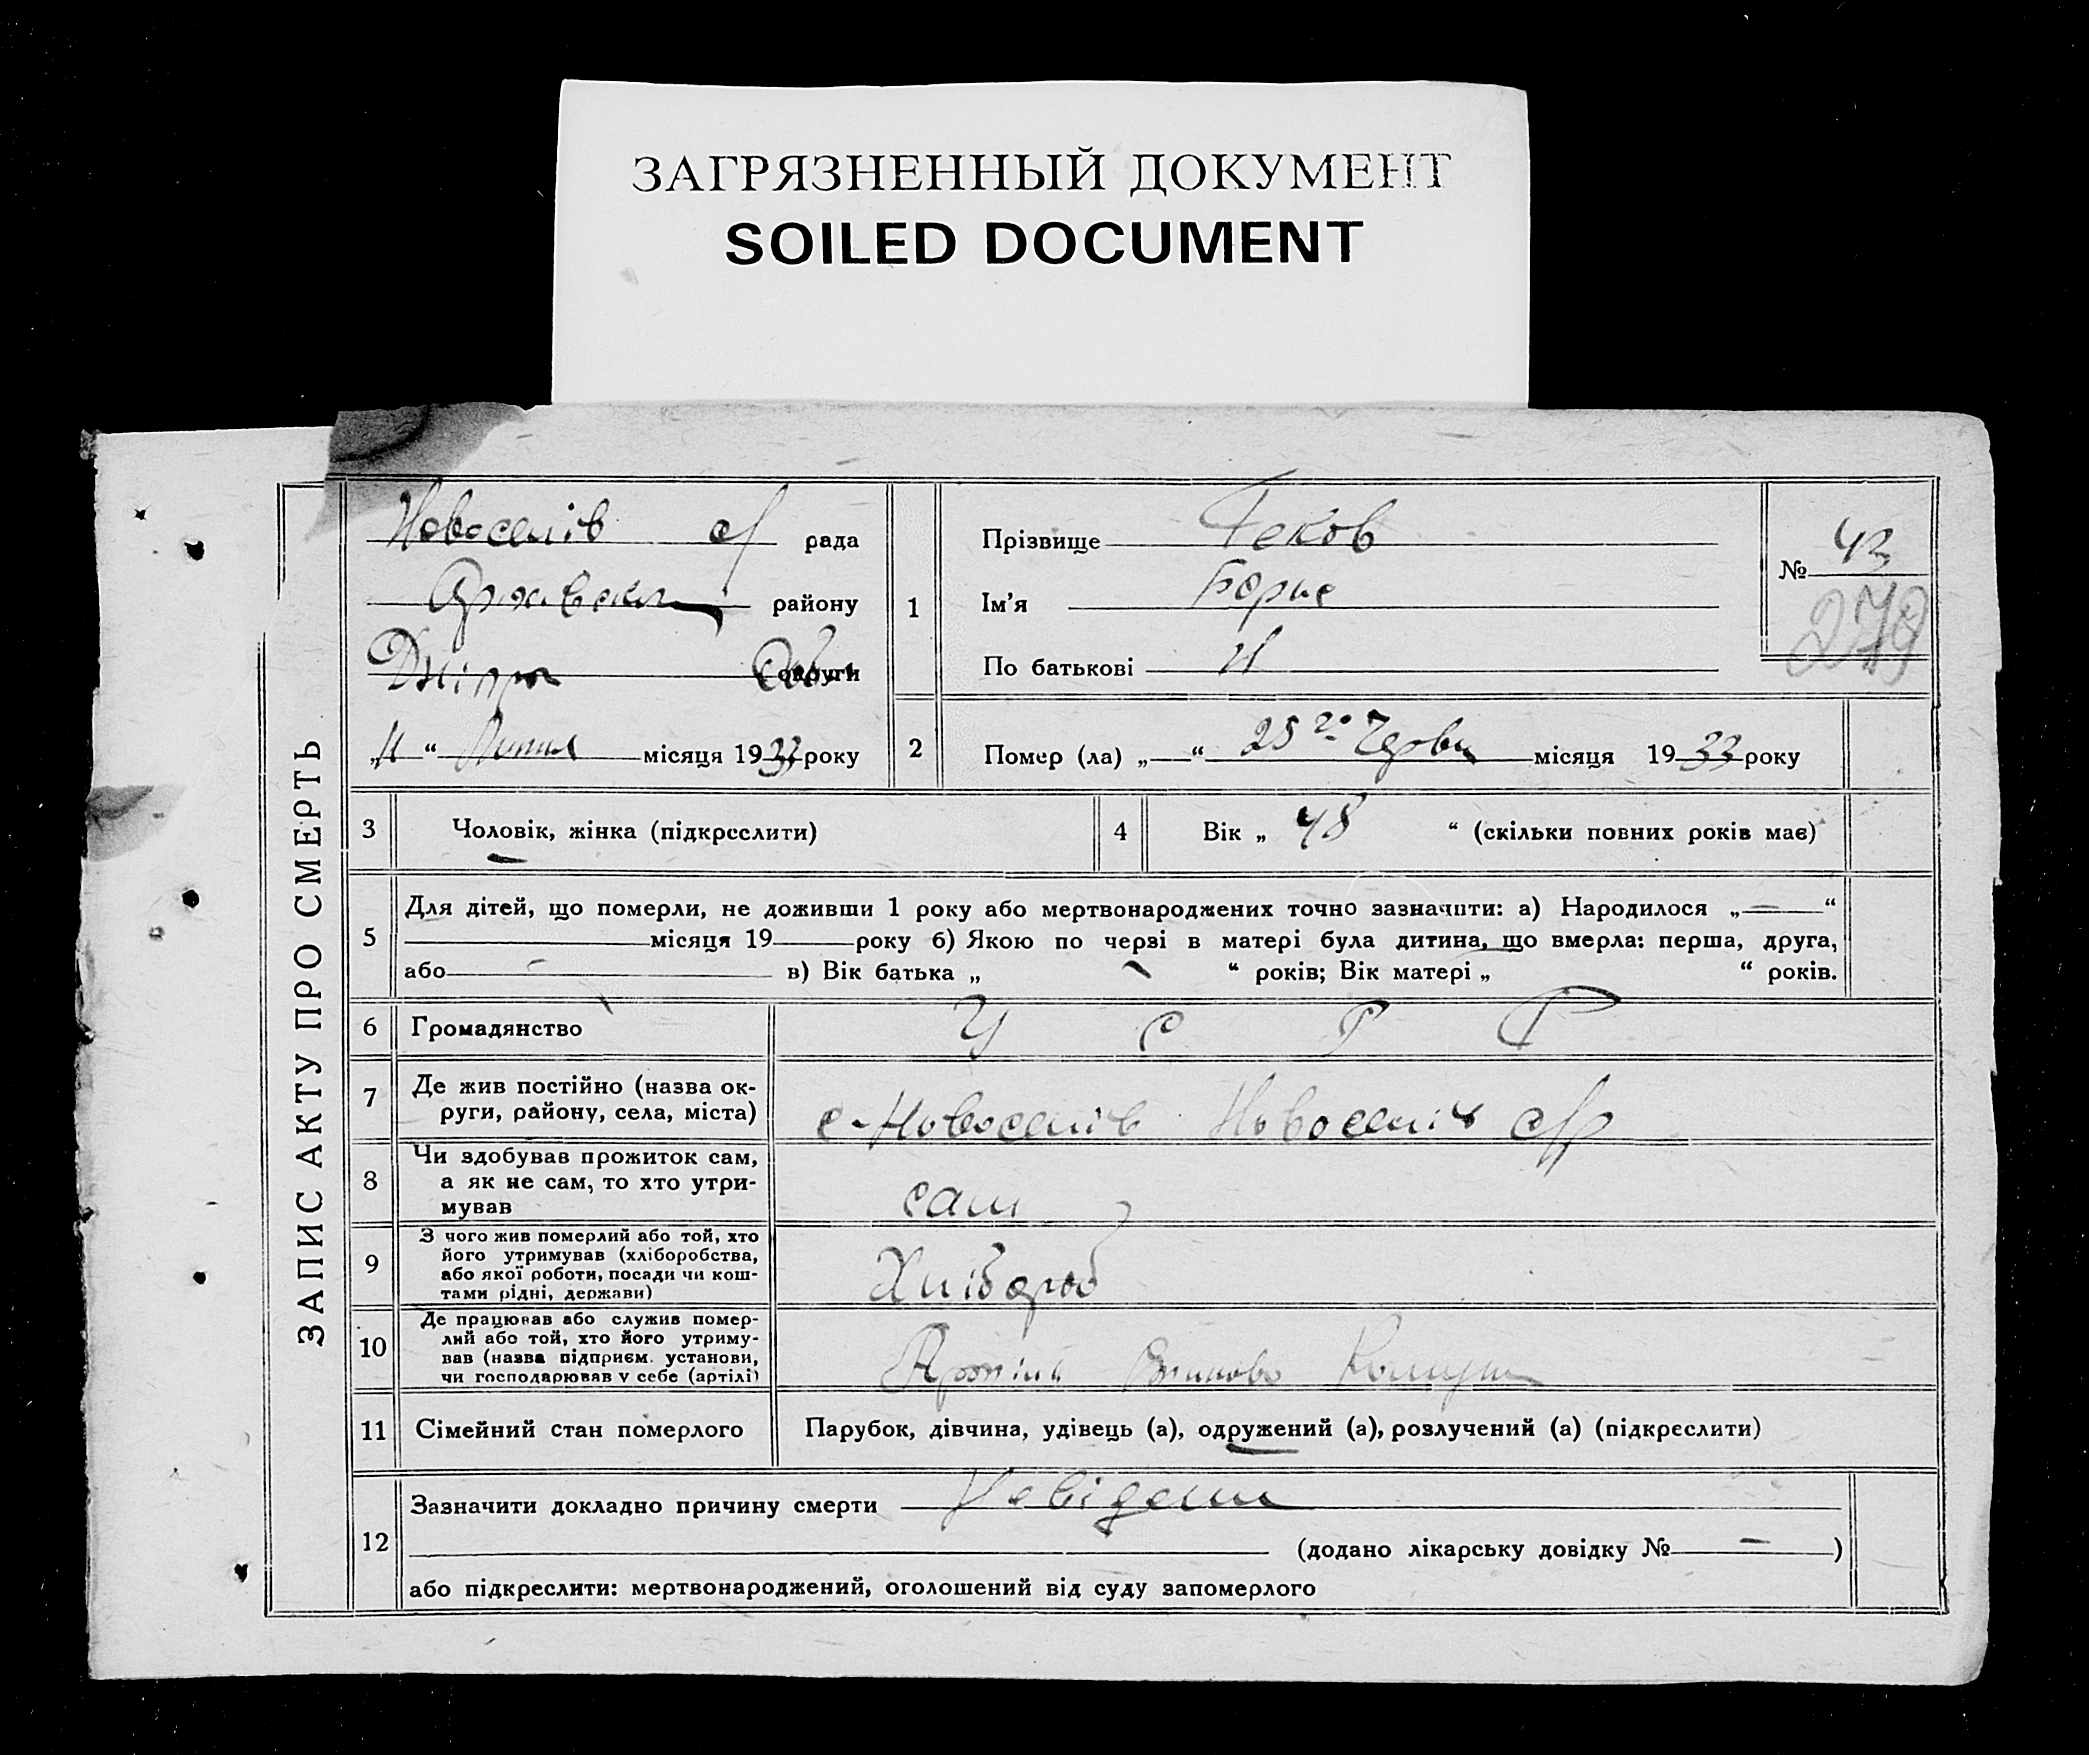 ЗАГРЯЗНЕННЫЙ ДОКУМЕНТ
SOILED DOCUMENT
ЗАПИС АКТУ ПРО СМЕРТЬ
Новоселів с/ рада
району
Дніпро Обл округи
„11“ Липня місяця 1933 року
1
Прізвище Геков
Ім’я Борис
По батькові И
№ 43
279
2
Помер (ла) „ “ 25го Червн місяця 1933 року
3 Чоловік, жінка (підкреслити)
4 Вік „ 48 “ (скільки повних років має)
5
Для дітей, що померли, не доживши 1 року або мертвонароджених точно зазначити: а) Народилося „—“
місяця 19 року б) Якою по черзі в матері була дитина, що вмерла: перша, друга,
або — в) Вік батька „ “ років; Вік матері „ “ років.
6 Громадянство У С Р Р
7 Де жив постійно (назва ок-
руги, району, села, міста)
с-Новоселів Новоселів с/р
8 Чи здобував прожиток сам,
а як не сам, то хто утри-
мував
сам
9 З чого жив померлий або той, хто
його утримував (хліборобства,
або якої роботи, посади чи кош-
тами рідні, держави)
Хлібороб
10 Де працював або служив помер-
лий або той, хто його утриму-
вав (назва підприєм. установи,
чи господарював у себе (артілі)
11 Сімейний стан померлого Парубок, дівчина, удівець (а), одружений (а), розлучений (а) (підкреслити)
12 Зазначити докладно причину смерти Невідом
(додано лікарську довідку № — )
або підкреслити: мертвонароджений, оголошений від суду запомерлого